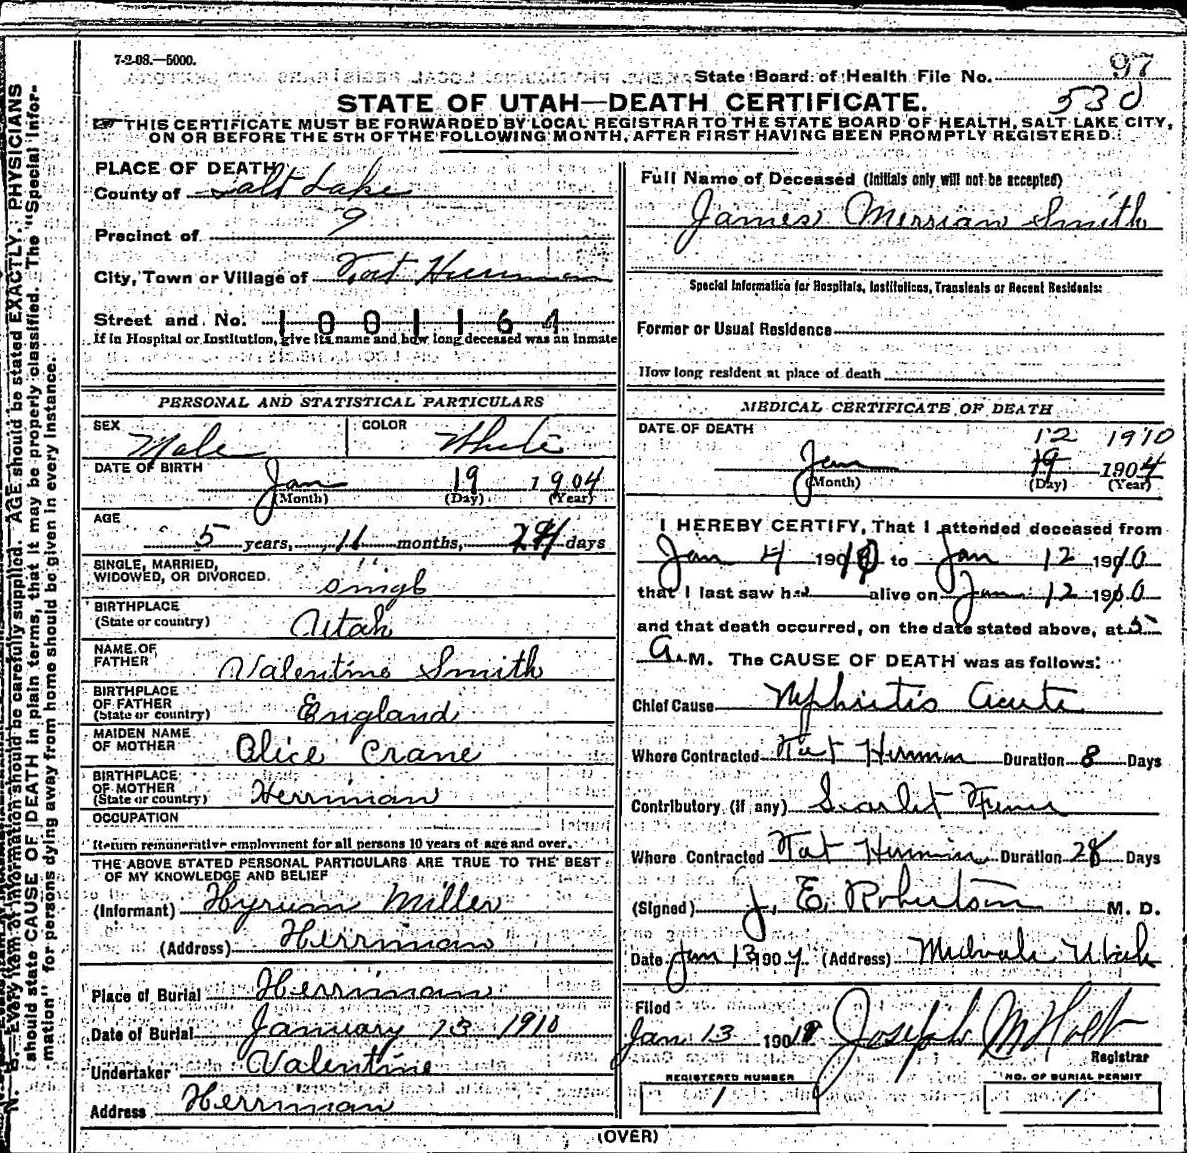 7-2-08.—5000.
State Board of Health File No. 97
530
STATE OF UTAH—DEATH CERTIFICATE.
☞ THIS CERTIFICATE MUST BE FORWARDED BY LOCAL REGISTRAR TO THE STATE BOARD OF HEALTH, SALT LAKE CITY,
ON OR BEFORE THE 5TH OF THE FOLLOWING MONTH, AFTER FIRST HAVING BEEN PROMPTLY REGISTERED.
PLACE OF DEATH
County of Salt Lake
Precinct of 9
City, Town or Village of
Street and No. 1001164
If in Hospital or Institution, give its name and how long deceased was an inmate
Full Name of Deceased (Initials only will not be accepted)
James Merrian Smith
Special Information for Hospitals, Institutions, Transients or Recent Residents:
Former or Usual Residence
How long resident at place of death
PERSONAL AND STATISTICAL PARTICULARS
SEX Male
COLOR White
DATE OF BIRTH
Jan 19 1904
(Month) (Day) (Year)
AGE
5 years, 11 months, 24 days
SINGLE, MARRIED,
WIDOWED, OR DIVORCED. Singl
BIRTHPLACE
(State or country) Utah
NAME OF
FATHER Valentine Smith
BIRTHPLACE
OF FATHER
(State or country) England
MAIDEN NAME
OF MOTHER Alice Crane
BIRTHPLACE
OF MOTHER
(State or country) Herriman
OCCUPATION
Return remunerative employment for all persons 10 years of age and over.
THE ABOVE STATED PERSONAL PARTICULARS ARE TRUE TO THE BEST
OF MY KNOWLEDGE AND BELIEF
(Informant) Hyrum Miller
(Address) Herriman
Place of Burial Herriman
Date of Burial January 13 1910
Undertaker Valentine
Address Herriman
MEDICAL CERTIFICATE OF DEATH
DATE OF DEATH
12 1910
Jan 19 1904
(Month) (Day) (Year)
I HEREBY CERTIFY, That I attended deceased from
Jan 4 1910 to Jan 12 1910
that I last saw h alive on Jan 12 1910
and that death occurred, on the date stated above, at 5
A. M. The CAUSE OF DEATH was as follows:
Chief Cause Nphritis Acute
Where Contracted Duration 8 Days
Contributory (if any) Scarlet Fever
Where Contracted Duration 28 Days
(Signed) J. E. Robertson M. D.
Date Jan 13 190 (Address) Midvale Utah
Filed
Jan 13 1910 Joseph M Holt
Registrar
REGISTERED NUMBER
1
NO. OF BURIAL PERMIT
1
(OVER)
N. B.—Every item of information should be carefully supplied. AGE should be stated EXACTLY. PHYSICIANS
should state CAUSE OF DEATH in plain terms, that it may be properly classified. The "Special Infor-
mation" for persons dying away from home should be given in every instance.